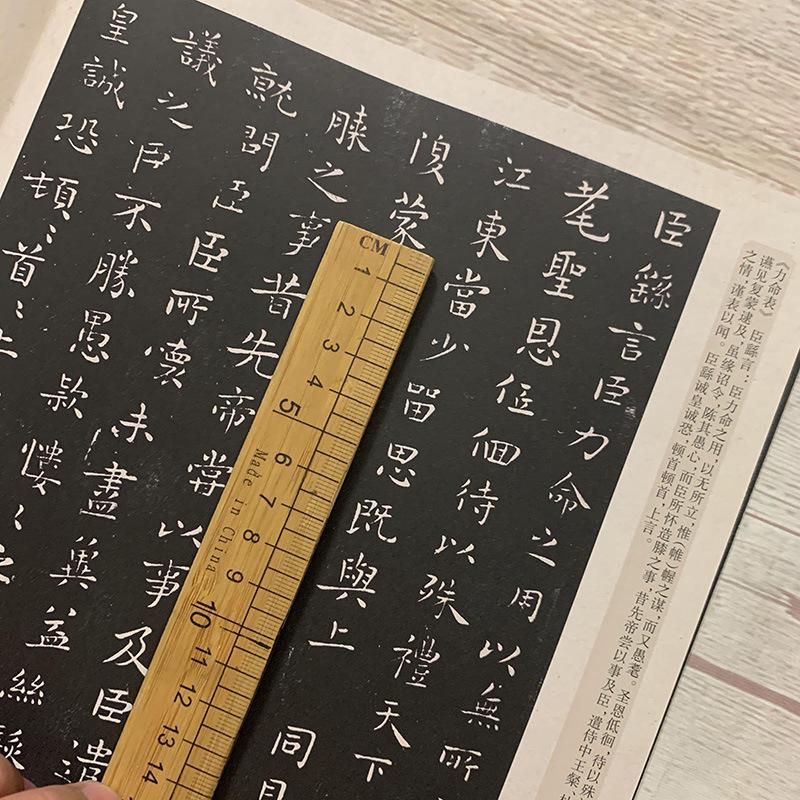 臣繇言臣力命之用以無所
耄聖恩低佪待以殊禮天下
江東當少留思既與上同見
復蒙
膝之事昔先帝嘗以事及臣遣
就問臣臣所懷未盡冀益絲髮
議之臣不勝愚款慺〻之
皇誠恐頓〻首〻上
《力命表》 臣繇言：臣力命之用，以无所立，惟（帷）幄之谋，而又愚耄。圣恩低徊，待以殊
谨见复蒙逮及，虽缘诏令，陈其愚心，而臣所怀造膝之事，昔先帝尝以事及臣，遣侍中王粲、杜
之情，谨表以闻。臣繇诚皇诚恐，顿首顿首，上言。
CM
1 2 3 4 5 6 7 8 9 10 11 12 13 14
Made in China